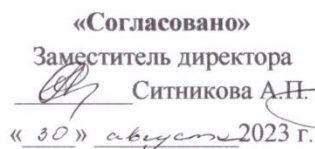 «Согласовано»
Заместитель директора
Ситникова А.П.
« 30 » августа 2023 г.